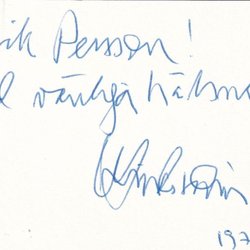 ik Persson!
l vänliga hälsn
197